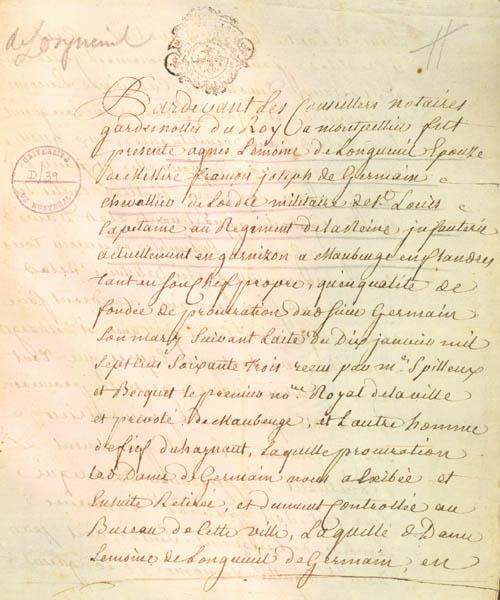 de Longueuil
Pardevant Les Conseillers notaires
gardenottes du Roy a montpellier fut
presente agnes Lemoine de Longueuil Epouse
de Messire francois joseph de Germain
chevallier de Lordre militaire de St. Louis
Capitaine au Regiment de la Reine jnfanterie
actuellement en garnizon a Maubeuge en flandres
tant en son Chef propre, qu'en qualité de
fondée de procuration dud Sieur Germain
son mary suivant Lacte du Dix janvier mil
Sept Cens Soixante trois receu par me. Spilleux
et Becquet le premier nore. Royal de la ville
et prevoté de Maubeuge, et L'autre homme
de fief du harnant, Laquelle procuration
lad. Dame de Germain nous a Exibée et
Ensuite Retirée, et dument Controllée au
Bureau de Cette ville, Laquelle d. Dame
Lemoine de Longueuil de Germain, en
UNIVERSITÉ
D/39
DE MONTRÉAL